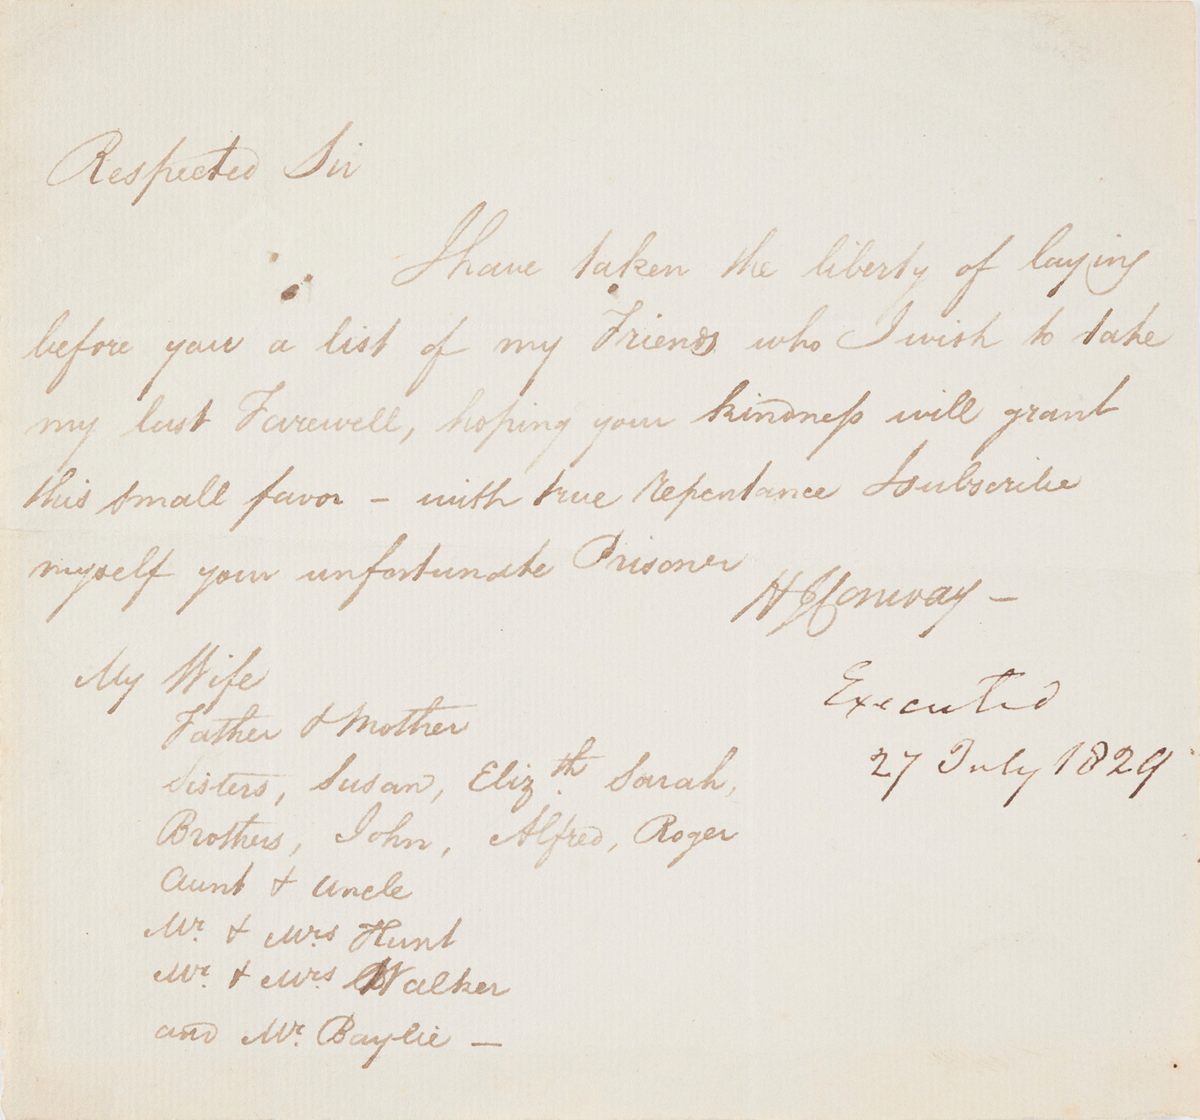 Respected Sir
I have taken the liberty of laying
before you a list of my Friends who I wish to take
my last Farewell, hoping your kindness will grant
this small favor – with true Repentance I subscribe
myself your unfortunate Prisoner
H Conway –
My Wife
Father & Mother
Sisters, Susan, Elizth. Sarah,
Brothers, John, Alfred, Roger
Aunt & Uncle
Mr. & Mrs Hunt
Mr. & Mrs Walker
and Mr. Baylie –
Executed
27 July 1829